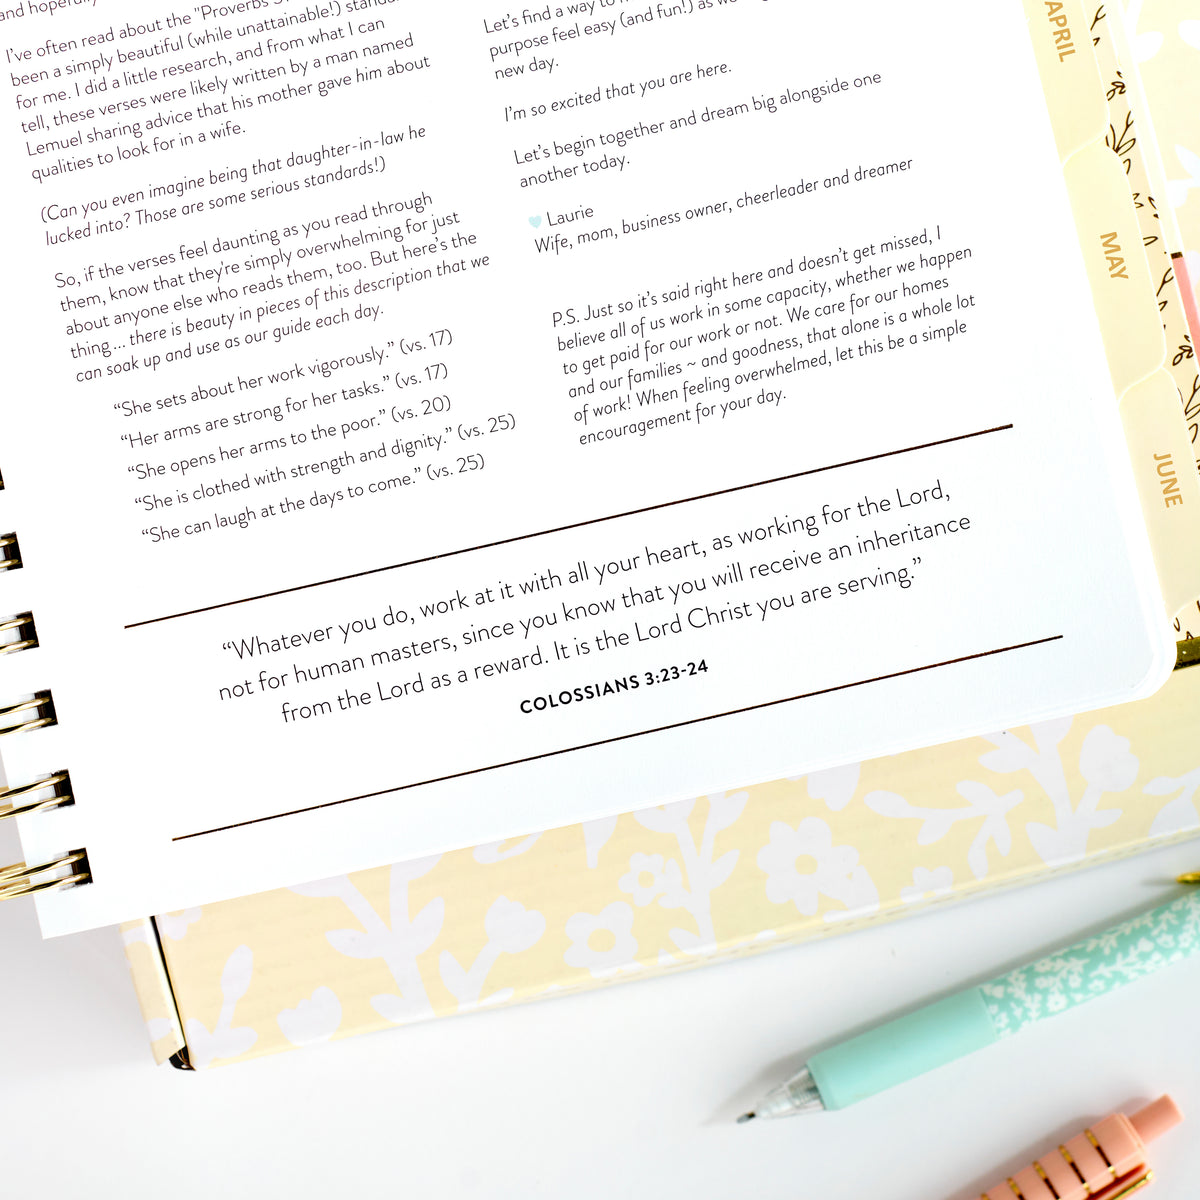 and hopefully
I've often read about the "Proverbs
been a simply beautiful (while unattainable!)
for me. I did a little research, and from what I can
tell, these verses were likely written by a man named
Lemuel sharing advice that his mother gave him about
qualities to look for in a wife.
(Can you even imagine being that daughter-in-law he
lucked into? Those are some serious standards!)
So, if the verses feel daunting as you read through
them, know that they're simply overwhelming for just
about anyone else who reads them, too. But here's the
thing... there is beauty in pieces of this description that we
can soak up and use as our guide each day.
“She sets about her work vigorously.” (vs. 17)
“Her arms are strong for her tasks.” (vs. 17)
“She opens her arms to the poor.” (vs. 20)
“She is clothed with strength and dignity.” (vs. 25)
“She can laugh at the days to come.” (vs. 25)
Let's find a way to
purpose feel easy (and fun!) as
new day.
I'm so excited that you are here.
Let's begin together and dream big alongside one
another today.
Laurie
Wife, mom, business owner, cheerleader and dreamer
P.S. Just so it's said right here and doesn't get missed, I
believe all of us work in some capacity, whether we happen
to get paid for our work or not. We care for our homes
and our families ~ and goodness, that alone is a whole lot
of work! When feeling overwhelmed, let this be a simple
encouragement for your day.
“Whatever you do, work at it with all your heart, as working for the Lord,
not for human masters, since you know that you will receive an inheritance
from the Lord as a reward. It is the Lord Christ you are serving.”
COLOSSIANS 3:23-24
APRIL
MAY
JUNE